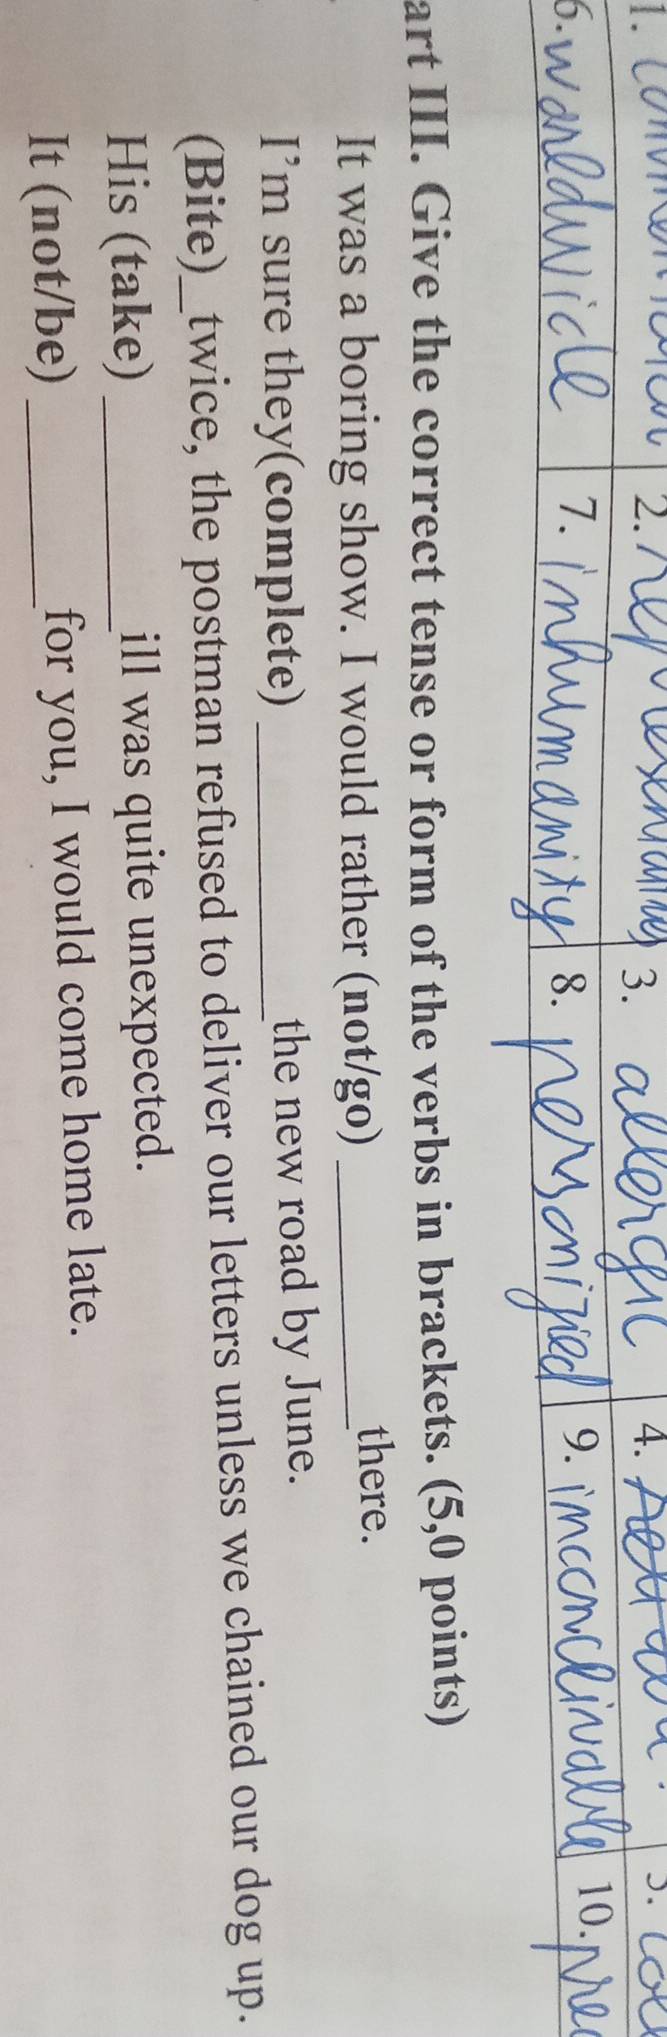 1. 2. 3. allergic 4. 5.
6. waredwide 7. inhumanity 8. personified 9. inconclivable 10. pre
art III. Give the correct tense or form of the verbs in brackets. (5,0 points)
It was a boring show. I would rather (not/go) __________ there.
I'm sure they(complete) __________ the new road by June.
(Bite)_twice, the postman refused to deliver our letters unless we chained our dog up.
His (take) __________ ill was quite unexpected.
It (not/be) __________ for you, I would come home late.